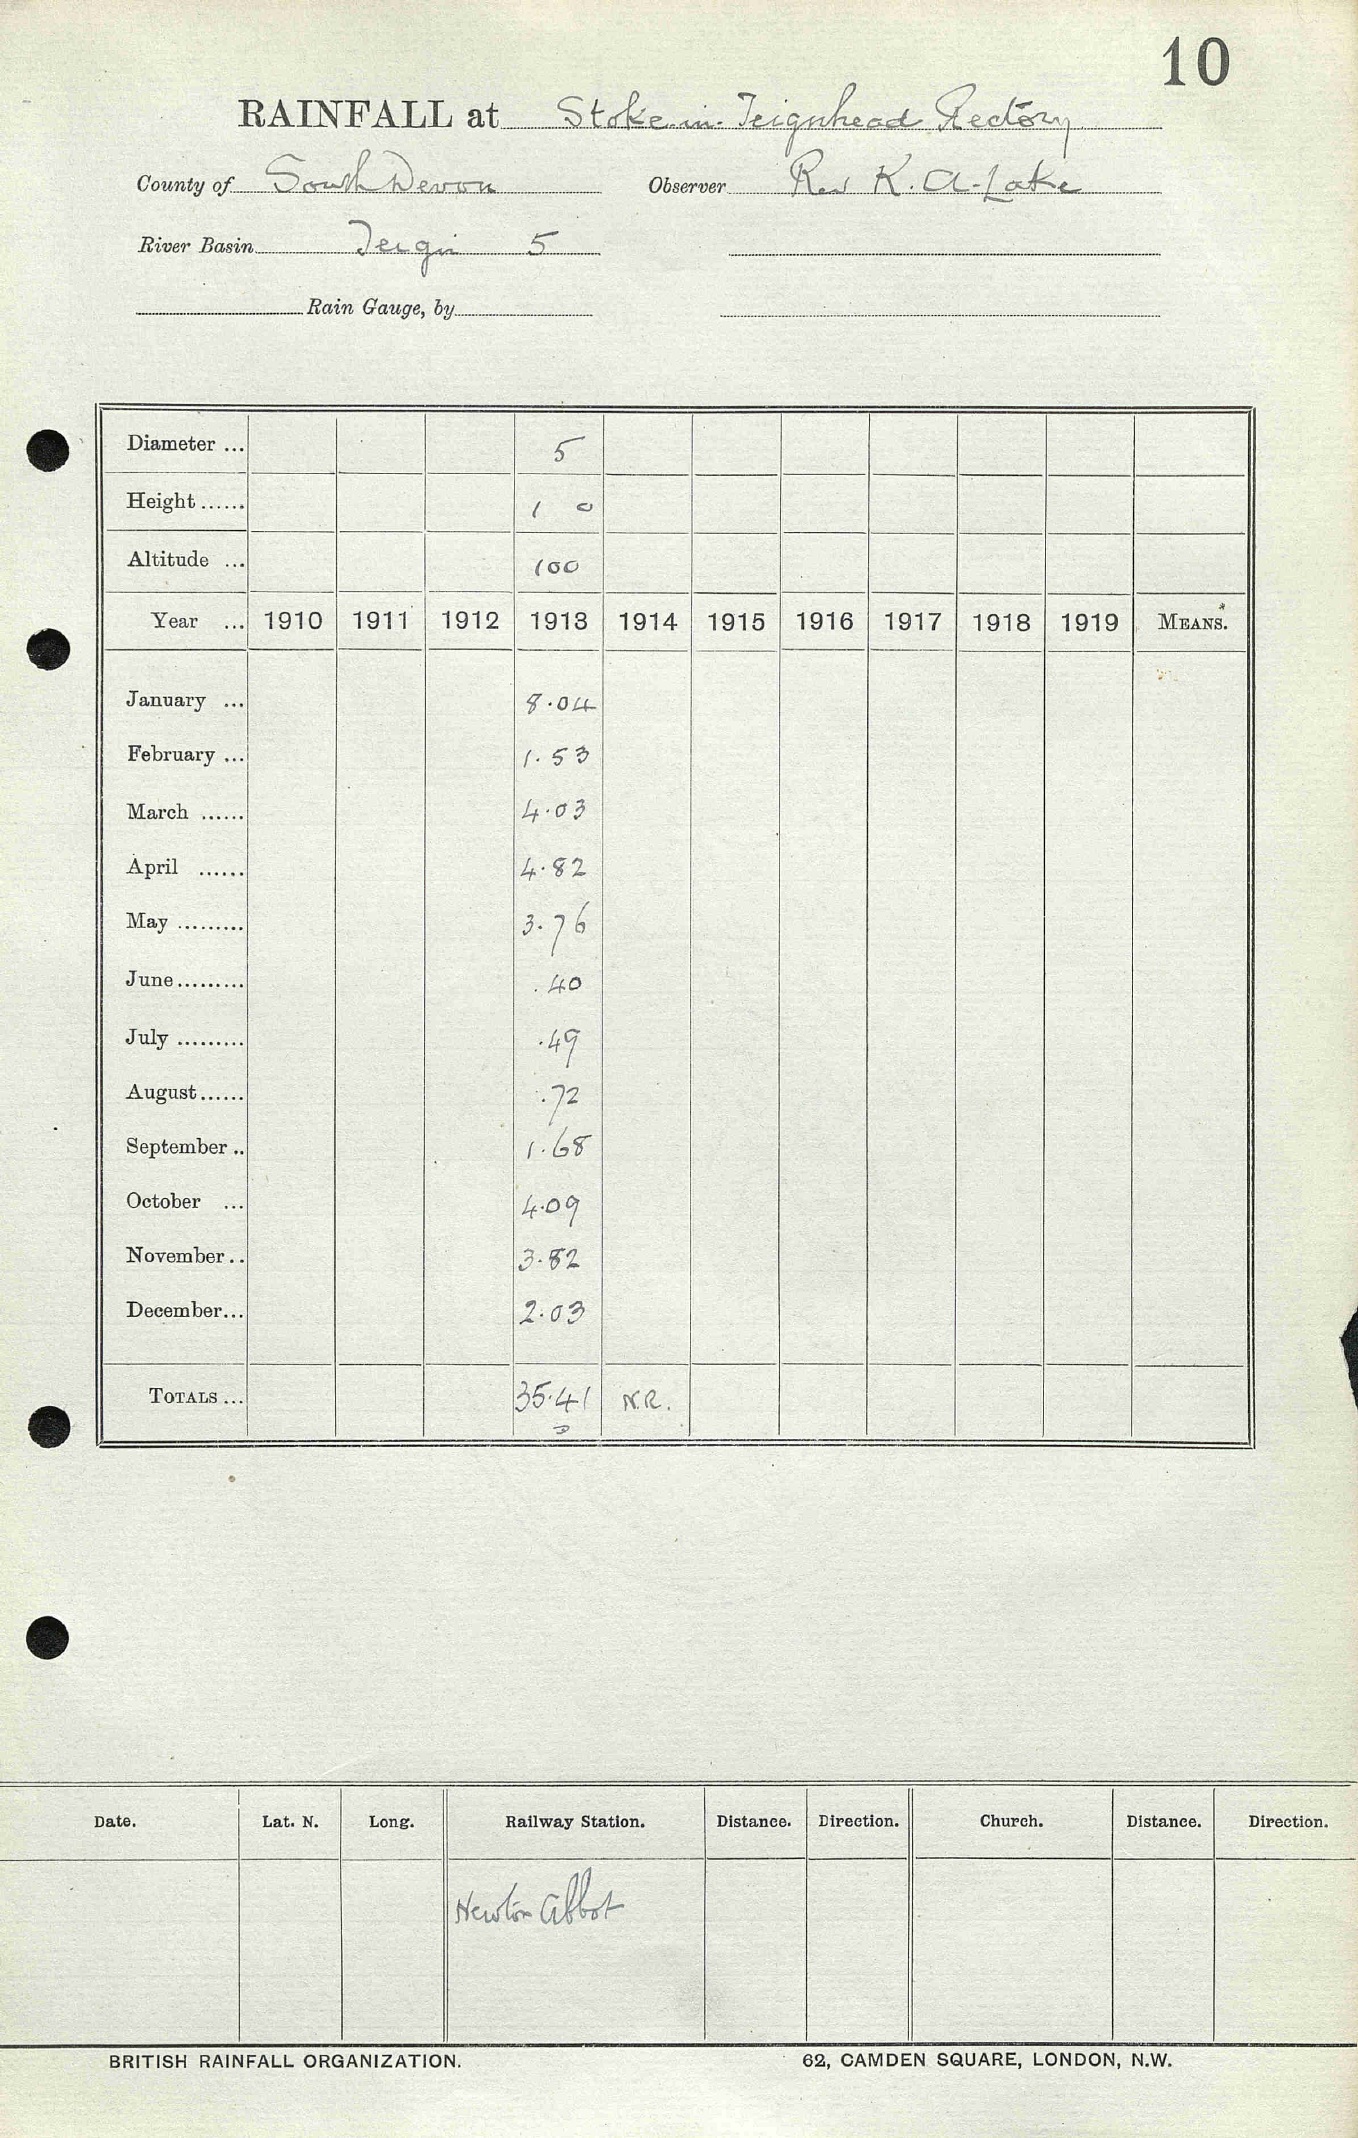 10
RAINFALL at Stoke-in-Teignhead Rectory
County of South Devon Observer Rev K. A. Lake
River Basin Teign 5
Rain Gauge, by
Diameter ... 5
Height ...... 1 0
Altitude ... 100
Year ... 1910 1911 1912 1913 1914 1915 1916 1917 1918 1919 MEANS.*
January ... 8.04
February ... 1.53
March ...... 4.03
April ...... 4.82
May ......... 3.76
June ......... .40
July ......... .49
August ...... .72
September .. 1.68
October ... 4.09
November .. 3.82
December ... 2.03
TOTALS ... 35.41 N.R.
Date. Lat. N. Long. Railway Station. Distance. Direction. Church. Distance. Direction.
Newton Abbot
BRITISH RAINFALL ORGANIZATION. 62, CAMDEN SQUARE, LONDON, N.W.